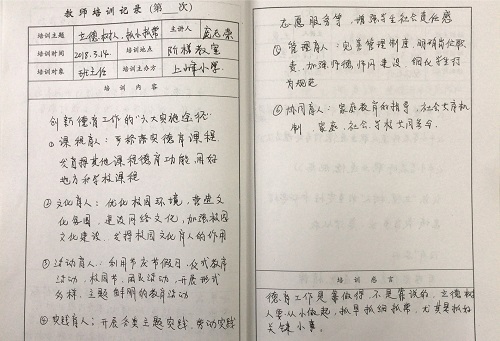 教师培训记录(第 次)
培训主题 立德树人，抓小抓常 主讲人
培训时间 2018.3.14. 培训地点 阶梯教室
培训对象 班主任 培训主办方 上峰小学
培训内容
创新德育工作的“六大实施途径”
①课程育人：严格落实德育课程
发挥其他课程德育功能，用好
地方和学校课程
②文化育人：优化校园环境，营造文
化氛围，建设网络文化，加强校园
文化建设，发挥校园文化育人的作用
③活动育人：利用节庆节假日，仪式教育
活动，校园节、团队活动，开展形式
多样，主题鲜明的教育活动
④实践育人：开展各类主题实践，劳动实践
志愿服务等，增强学生社会责任感
⑤管理育人：完善管理制度，明确岗位职
责，加强师德师风建设，细化学生行
为规范
⑥协同育人：家庭教育和指导，社会共育机
制，家庭，社会，学校共同
培训感言
德育工作是靠做得，不是靠说的，立德树
人要从小做起，抓早抓细抓常，尤其是抓好
关键小事。